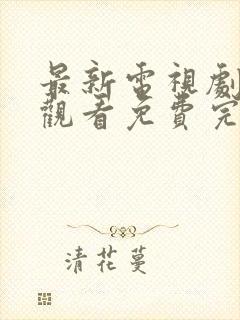 最新電視劇
觀看免費完
清花蔓